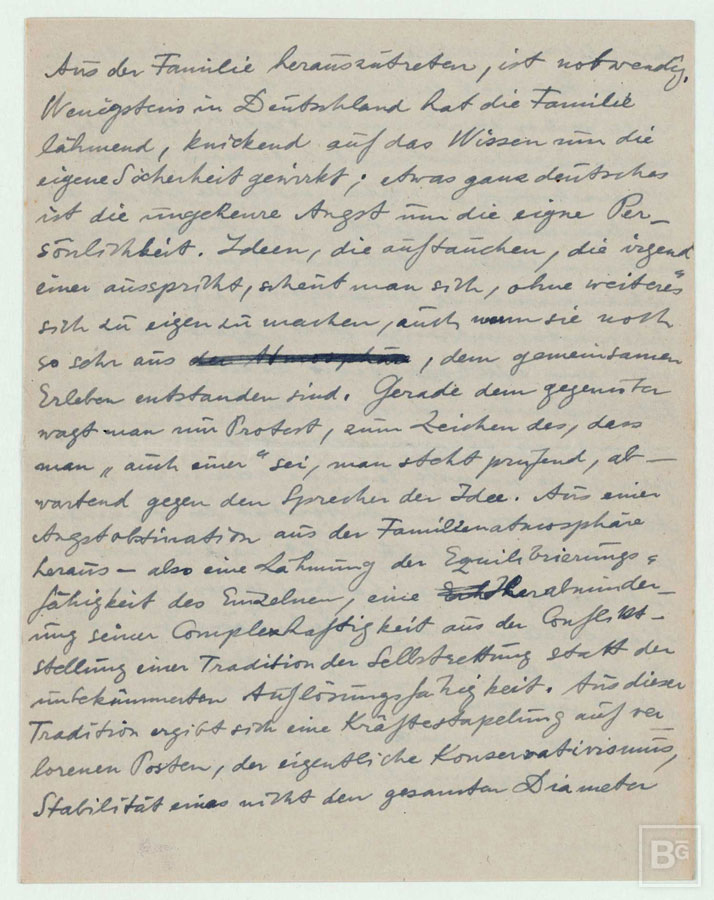 Aus der Familie herauszutreten, ist notwendig.
Wenigstens in Deutschland hat die Familie
lähmend, knickend auf das Wissen um die
eigene Sicherheit gewirkt; etwas ganz deutsches
ist die ungeheure Angst um die eigne Per-
sönlichkeit. Ideen, die auftauchen, die irgend
einer ausspricht, scheut man sich, „ohne weiteres“
sich zu eigen zu machen, auch wenn sie noch
so sehr aus der Atmosphäre, dem gemeinsamen
Erleben entstanden sind. Gerade dem gegenüber
wagt man nur Protest, zum Zeichen des, dass
man „auch einer“ sei, man steht prüfend, ab-
wartend gegen den Sprecher der Idee. Aus einer
Angstobstination aus der Familienatmosphäre
heraus – also eine Lähmung der Equilibrierungs-
fähigkeit des Einzelnen, eine Herabminder-
ung seiner Complexhaftigkeit aus der Conflikt-
stellung einer Tradition der Selbstrettung statt der
unbekümmerten Auflösungsfähigkeit. Aus dieser
Tradition ergibt sich eine Kräftestapelung auf ver
lorenen Posten, der eigentliche Konservativismus,
Stabilität eines nicht den gesamten Diameter
BG